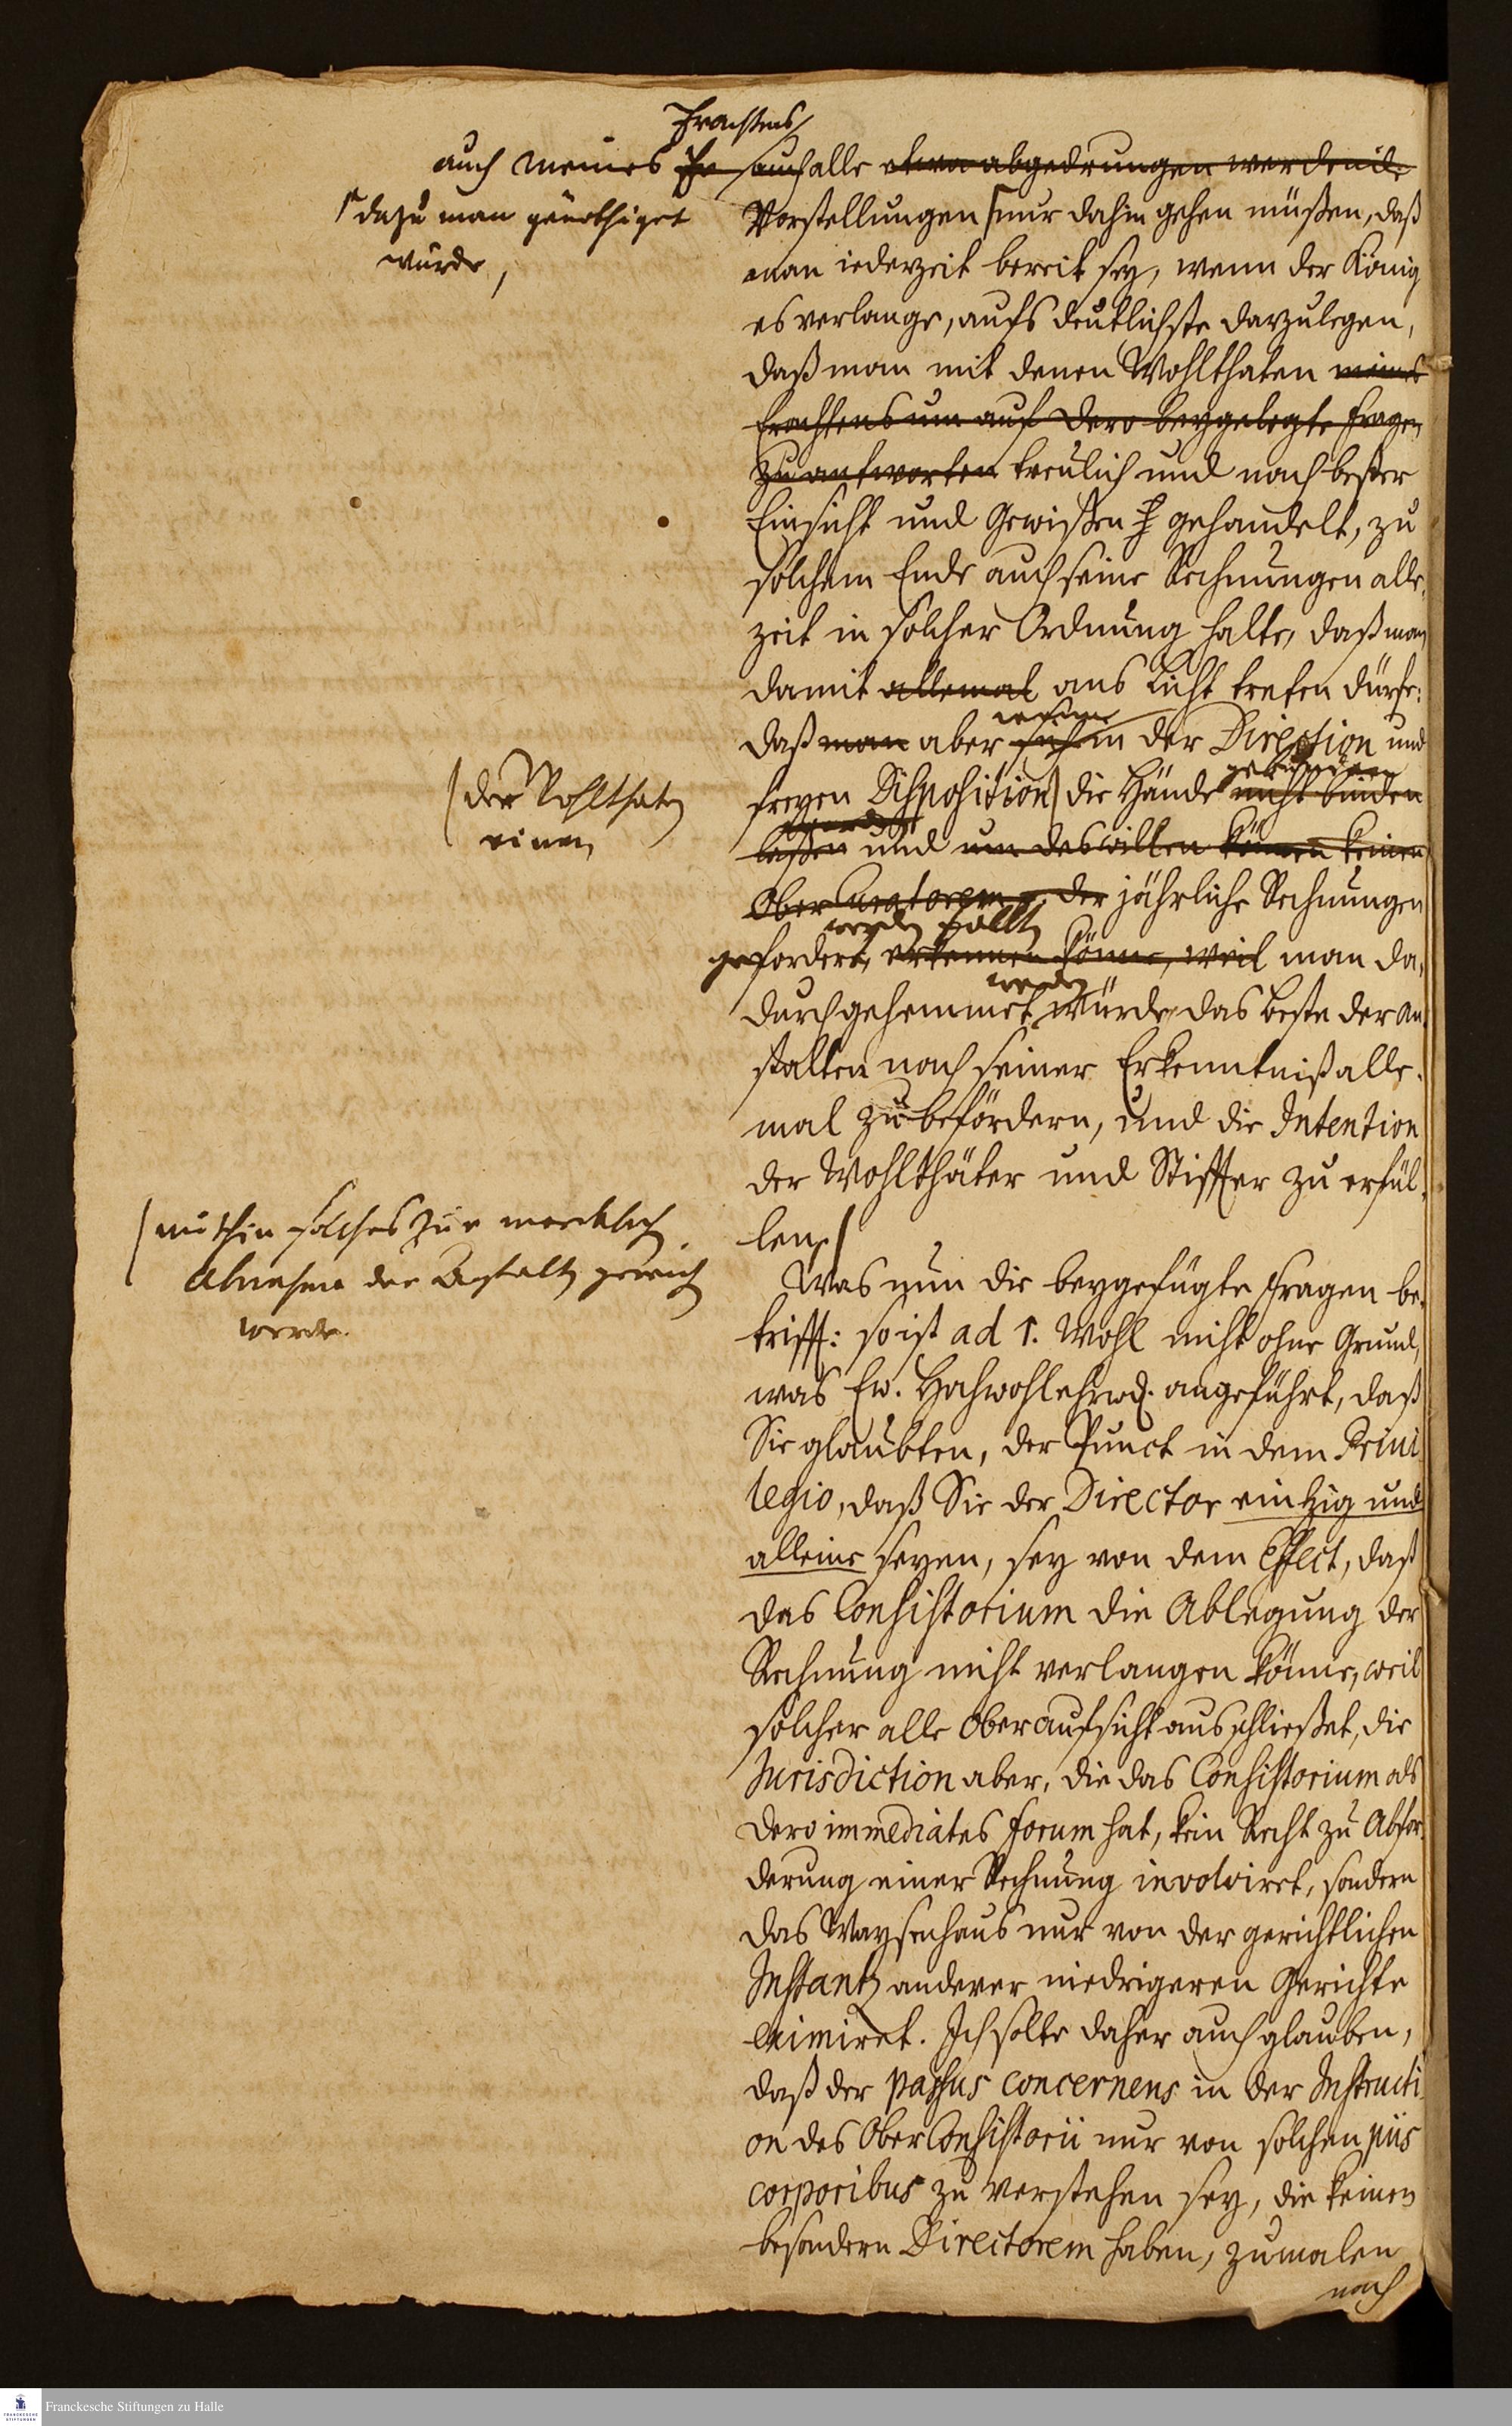 Erachtens
auch meines Er auch alle etwa abgedrungen werdende
dazu man genöthiget
würde,
Vorstellungen nur dahin gehen müßen, daß
man iederzeit bereit sey, wenn der König
es verlange, aufs deutlichste darzulegen,
daß man mit denen Wohlthaten meines
Erachtens um auf dero beygelegte Fragen
zu antworten treulich und nach bester
Einsicht und Gewißen gehandelt, zu
solchem Ende auch seine Rechnungen alle-
zeit in solcher Ordnung halte, daß man
damit allemal ans Licht treten dürfe:
daß man aber sich in der Direction und
der Wohlthaten
einen
freyen Disposition die Hände nicht binden
gebunden
laßen und um deswillen können keinen
Ober Curatorem, der jährliche Rechnungen
werden sollten
gefordert, erkennen könne, weil man da-
werden
durch gehemmet würde, das Beste der An-
stalten nach seiner Erkenntniß alle-
mal zu befördern, und die Intention
der Wohlthäter und Stiffter zu erfül-
len.
mithin solches zur mercklich
Abnahme der Anstalten gereich
werde.
Was nun die beygefügte Fragen be-
trifft: so ist ad 1. wohl nicht ohne Grund,
was Ew. Hochwohlehrwd. angeführt, daß
Sie glaubten, der Punct in dem Privi-
legio, daß Sie der Director eintzig und
alleine seyen, sey von dem Effect, daß
das Consistorium die Ablegung der
Rechnung nicht verlangen könne, weil
solcher alle Oberaufsicht ausschließet, die
Jurisdiction aber, die das Consistorium als
dero immediates forum hat, kein Recht zu Abfor-
derung einer Rechnung involviret, sondern
das Waysenhaus nur von der gerichtlichen
Instantz anderer niedrigeren Gerichte
eximiret. Ich solte daher auch glauben,
daß der passus concernens in der Instructi-
on des Ober Consistorii nur von solchen piis
corporibus zu verstehen sey, die keinen
besondern Directorem haben, zumalen
nach
Franckesche Stiftungen zu Halle